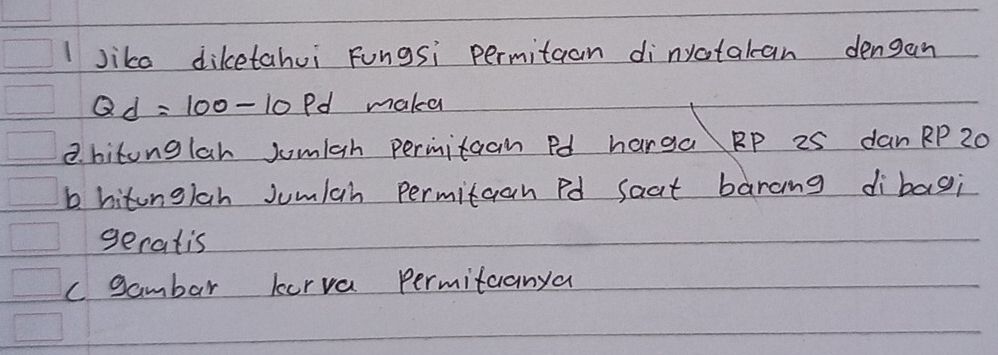 1 Jika diketahui Fungsi permitaan dinyatakan dengan
Qd = 100 - 10 Pd maka
a. hitunglah Jumlah permitaan Pd harga RP 25 dan RP 20
b hitunglah Jumlah Permitaan Pd saat barang di bagi
geratis
c gambar kurva permitaanya